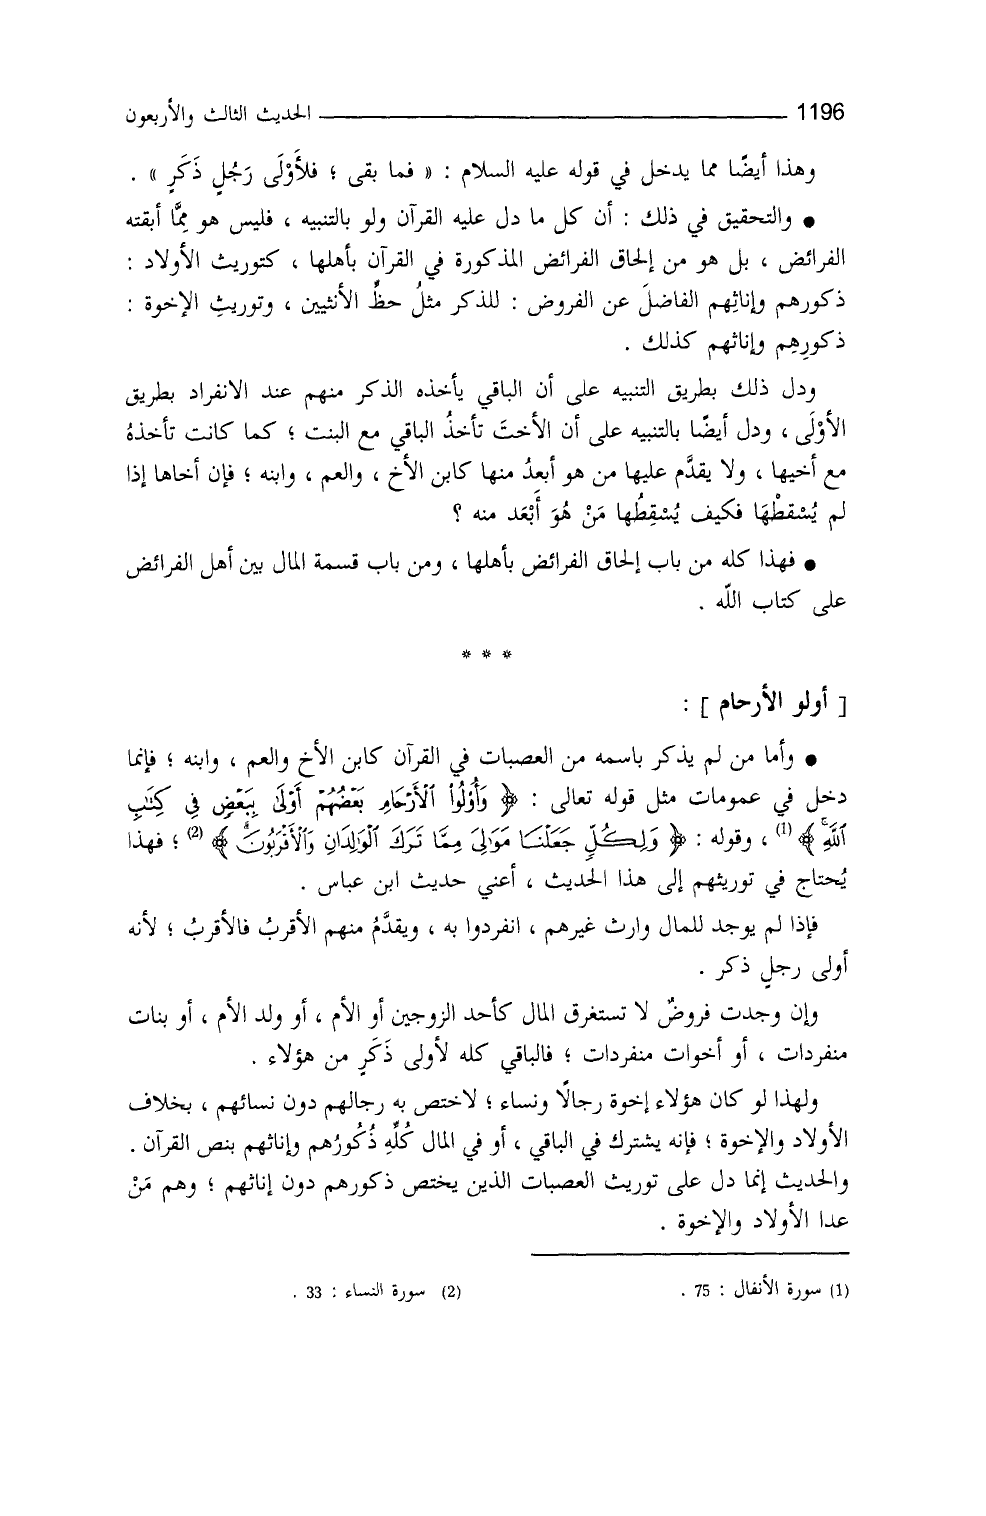 1196 الحديث الثالث والأربعون
وهذا أيضًا مما يدخل في قوله عليه السلام : « فما بقى ؛ فلأَوْلَى رَجُلٍ ذَكَرٍ » .
● والتحقيق في ذلك : أن كل ما دل عليه القرآن ولو بالتنبيه ، فليس هو مِمَّا أبقته
الفرائض ، بل هو من إلحاق الفرائض المذكورة في القرآن بأهلها ، كتوريث الأولاد :
ذكورهم وإناثِهم الفاضلَ عن الفروض : للذكر مثلُ حظِّ الأنثيين ، وتوريثِ الإخوة :
ذكورِهِم وإناثهم كذلك .
ودل ذلك بطريق التنبيه على أن الباقي يأخذه الذكر منهم عند الانفراد بطريق
الأوْلَى ، ودل أيضًا بالتنبيه على أن الأختَ تأخذُ الباقي مع البنت ؛ كما كانت تأخذهُ
مع أخيها ، ولا يقدَّم عليها من هو أبعدُ منها كابن الأخ ، والعم ، وابنه ؛ فإن أخاها إذا
لم يُسْقطْهَا فكيف يُسْقِطُها مَنْ هُوَ أَبْعَد منه ؟
● فهذا كله من باب إلحاق الفرائض بأهلها ، ومن باب قسمة المال بين أهل الفرائض
على كتاب اللّه .
* * *
[ أولو الأرحام ] :
● وأما من لم يذكر باسمه من العصبات في القرآن كابن الأخ والعم ، وابنه ؛ فإنما
دخل في عمومات مثل قوله تعالى : ﴿ وَأُوْلُواْ ٱلْأَرْحَامِ بَعْضُهُمْ أَوْلَىٰ بِبَعْضٍ فِى كِتَٰبِ
ٱللَّهِ ﴾ (1) ، وقوله : ﴿ وَلِكُلٍّ جَعَلْنَا مَوَٰلِىَ مِمَّا تَرَكَ ٱلْوَٰلِدَانِ وَٱلْأَقْرَبُونَ ﴾ (2) ؛ فهذا
يُحتاج في توريثهم إلى هذا الحديث ، أعني حديث ابن عباس .
فإذا لم يوجد للمال وارث غيرهم ، انفردوا به ، ويقدَّمُ منهم الأقربُ فالأقربُ ؛ لأنه
أولى رجلٍ ذكر .
وإن وجدت فروضٌ لا تستغرق المال كأحد الزوجين أو الأم ، أو ولد الأم ، أو بنات
منفردات ، أو أخوات منفردات ؛ فالباقي كله لأولى ذَكَرٍ من هؤلاء .
ولهذا لو كان هؤلاء إخوة رجالًا ونساء ؛ لاختص به رجالهم دون نسائهم ، بخلاف
الأولاد والإخوة ؛ فإنه يشترك في الباقي ، أو في المال كُلِّهِ ذُكُورُهم وإناثهم بنص القرآن .
والحديث إنما دل على توريث العصبات الذين يختص ذكورهم دون إناثهم ؛ وهم مَنْ
عدا الأولاد والإخوة .
(1) سورة الأنفال : 75 . (2) سورة النساء : 33 .